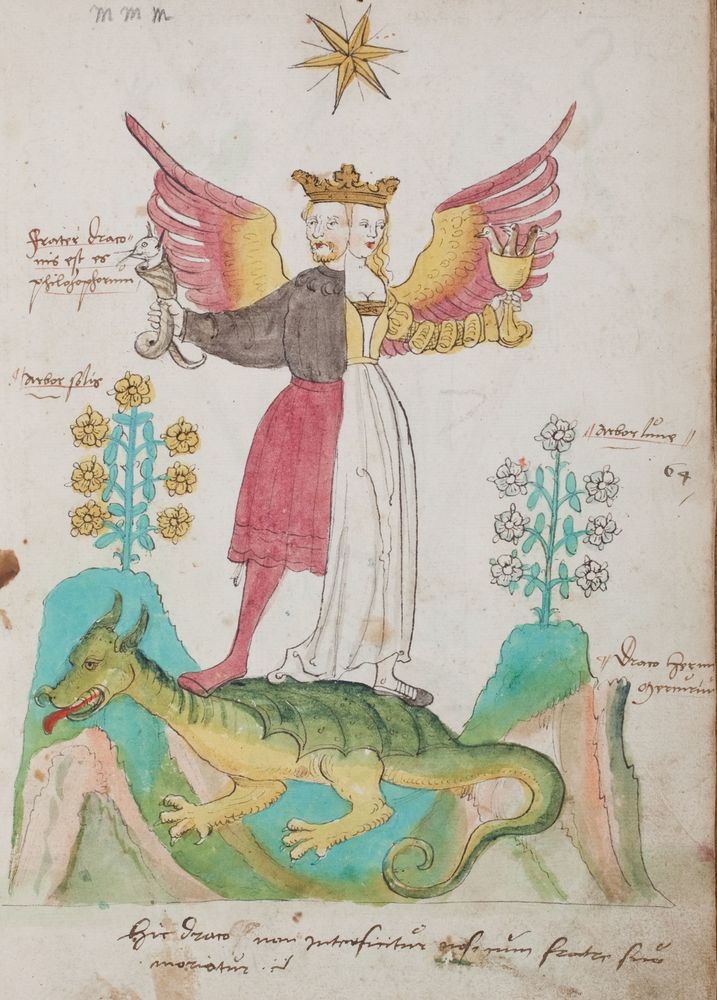 m m m
Frater draco
nis est es
philosophorum
arbor solis
arbor lune
64
Draco
Hic draco non interficitur nisi cum fratre suo
moriatur